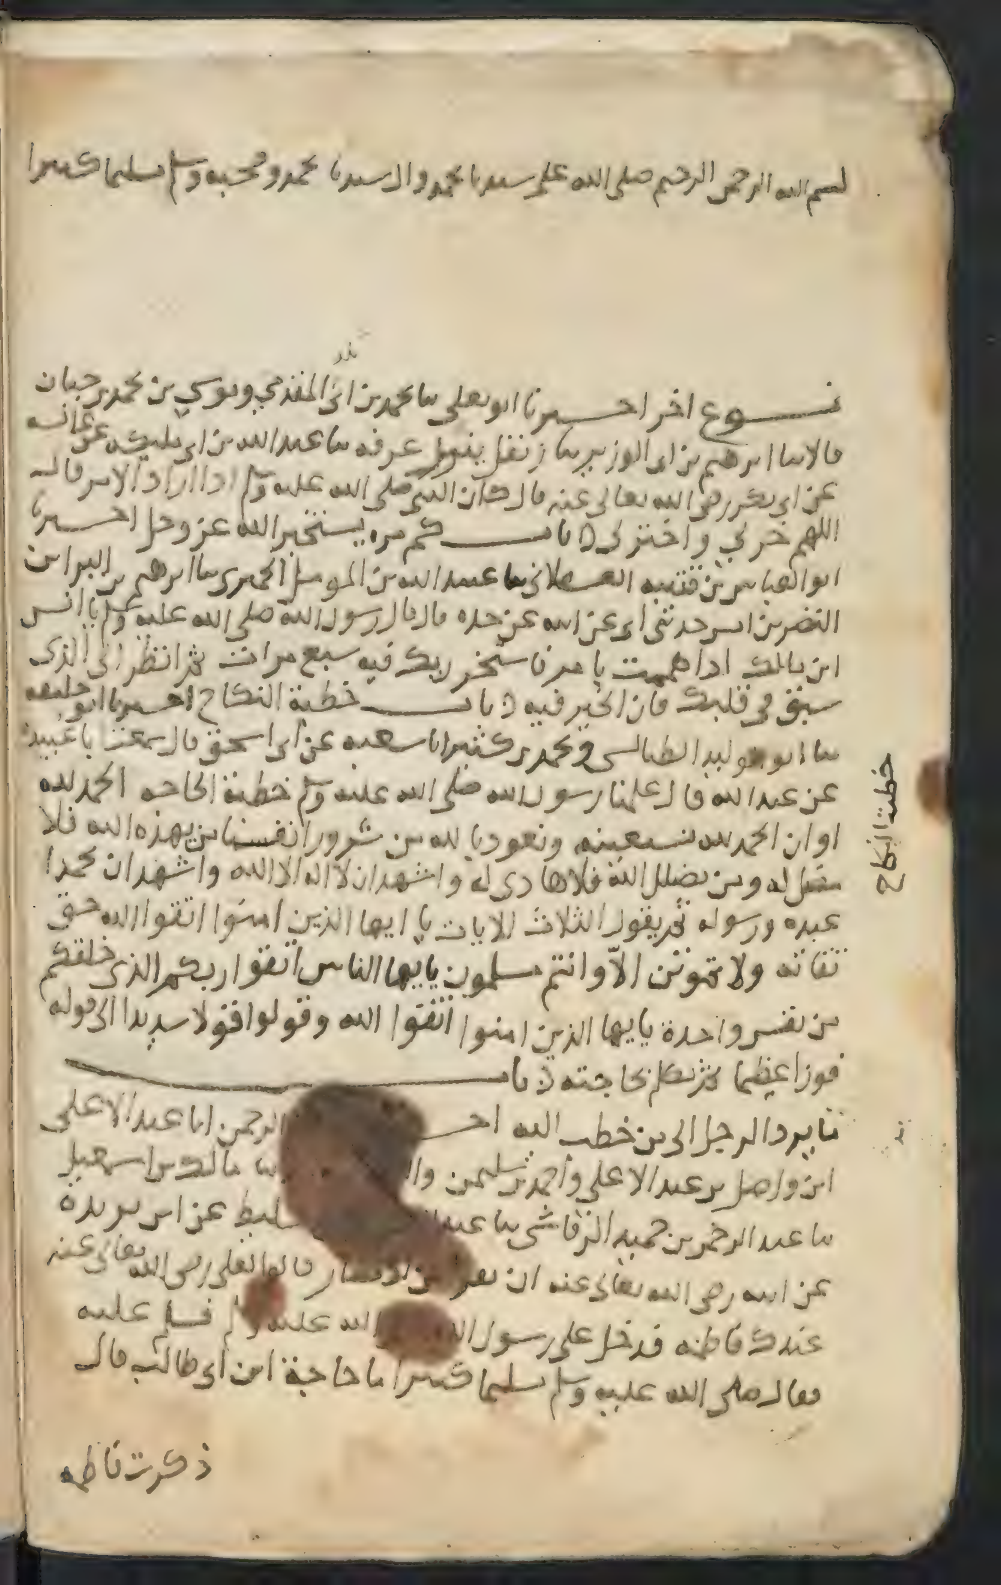 بسم الله الرحمن الرحيم صلى الله على سيدنا محمد وال سيدنا محمد وصحبه وسلم تسليما كثيرا
نوع اخر اخبرنا ابو يعلى ثنا محمد بن ابى المقدمي وموسي بن محمد بن حيان
قالا ثنا ابرهيم بن ابى الوزير ثنا زنفل بنزيل عرفه ثنا عبد الله بن ابى مليكه عن عائشه
عن ابى بكر رضى الله تعالى عنه قال كان النبى صلى الله عليه وسلم اذا اراد الامر قال
اللهم خر لي واختر لى باب كم مره يستخير الله عز وجل اخبرنا
ابو العباس بن قتيبه العسقلانى ثنا عبيد الله بن المومل الحميرى ثنا ابرهيم بن البرا بن
النضر بن انس حدثنى ابى عن ابيه عن جده قال قال رسول الله صلى الله عليه وسلم يا انس
ابن مالك اذا هممت بامر فاستخر ربك فيه سبع مرات ثم انظر الى الذى
سبق فى قلبك فان الخير فيه باب خطبة النكاح اخبرنا ابو خليفه
ثنا ابو الوليد الطيالسى و محمد بن كثير انا سعبه عن ابى اسحق قال سمعت ابا عبيدة
عن عبد الله قال علمنا رسول الله صلى الله عليه وسلم خطبة الحاجه الحمد لله
او ان الحمد لله نستعينه ونعوذ بالله من شرور انفسنا من يهده الله فلا
مضل له ومن يضلل الله فلا هادى له واشهد ان لا اله الا الله واشهد ان محمدا
عبده ورسوله ثم يقول الثلاث الايات يا ايها الذين امنوا اتقوا الله حق
تقاته ولا تموتن الا وانتم مسلمون يايها الناس اتقوا ربكم الذى خلقكم
من نفس واحدة يايها الذين امنوا اتقوا الله وقولوا قولا سديدا الى قوله
فوزا عظيما ثم تكلم بحاجته باب
ما يرد الرجل الى من خطب اليه اخـ الرحمن انا عبد الاعلى
ابن واصل بن عبد الاعلى واحمد بن سليمن وا ثنا مالك بن اسمعيل
ثنا عبد الرحمن بن حميد الرقاشى ثنا عبد سليط عن ابن بريده
عن ابيه رضى الله تعالى عنه ان نفرا من الانصار قالوا لعلى رضى الله تعالى عنه
عندك فاطمه فدخل على رسول الله الله عليه وسلم فسلم عليه
فقال صلى الله عليه وسلم تسليما كثيرا ما حاجة ابن ابى طالب قال
ذكرت فاطمه
خطبة النكاح